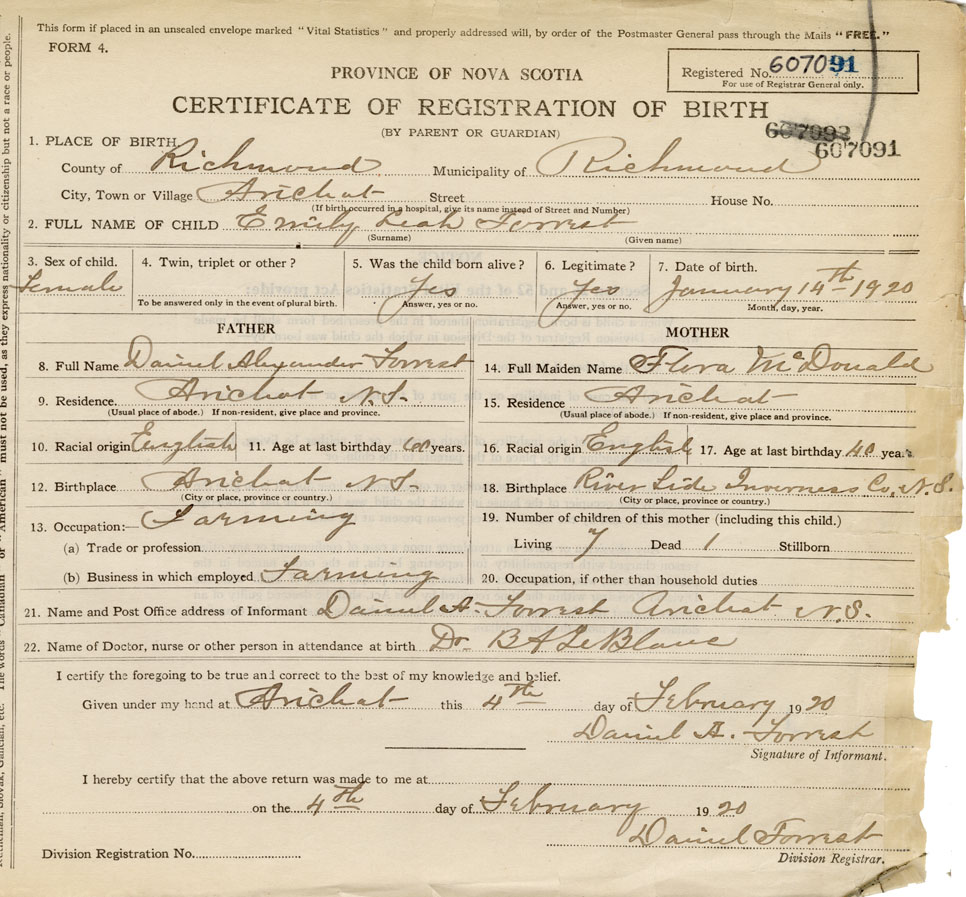 This form if placed in an unsealed envelope marked "Vital Statistics" and properly addressed will, by order of the Postmaster General pass through the Mails "FREE."
FORM 4.
Registered No. 607091
For use of Registrar General only.
PROVINCE OF NOVA SCOTIA
CERTIFICATE OF REGISTRATION OF BIRTH
(BY PARENT OR GUARDIAN)
607092
607091
1. PLACE OF BIRTH
County of Richmond Municipality of Richmond
City, Town or Village Arichat Street House No.
(If birth occurred in a hospital, give its name instead of Street and Number)
2. FULL NAME OF CHILD Emily Leah Forrest
(Surname) (Given name)
3. Sex of child. 4. Twin, triplet or other? 5. Was the child born alive? 6. Legitimate? 7. Date of birth.
Female Yes Yes January 14th 1920
To be answered only in the event of plural birth. Answer, yes or no. Answer, yes or no. Month, day, year.
FATHER MOTHER
8. Full Name Daniel Alexander Forrest
9. Residence. Arichat N.S.
(Usual place of abode.) If non-resident, give place and province.
10. Racial origin English 11. Age at last birthday years.
12. Birthplace Arichat N.S.
(City or place, province or country.)
13. Occupation:— Farming
(a) Trade or profession
(b) Business in which employed Farming
14. Full Maiden Name Flora McDonald
15. Residence Arichat
(Usual place of abode.) If non-resident, give place and province.
16. Racial origin English 17. Age at last birthday 40 years.
18. Birthplace River Side Inverness Co, N.S.
(City or place, province or country.)
19. Number of children of this mother (including this child.)
Living 7 Dead 1 Stillborn
20. Occupation, if other than household duties
21. Name and Post Office address of Informant Daniel A. Forrest Arichat N.S.
22. Name of Doctor, nurse or other person in attendance at birth Dr. B A LeBlanc
I certify the foregoing to be true and correct to the best of my knowledge and belief.
Given under my hand at Arichat this 4th day of February 1920
Daniel A. Forrest
Signature of Informant.
I hereby certify that the above return was made to me at
on the 4th day of February 1920
Daniel Forrest
Division Registrar.
Division Registration No.
must not be used, as they express nationality or citizenship but not a race or people.
The words "Canadian" or "American"